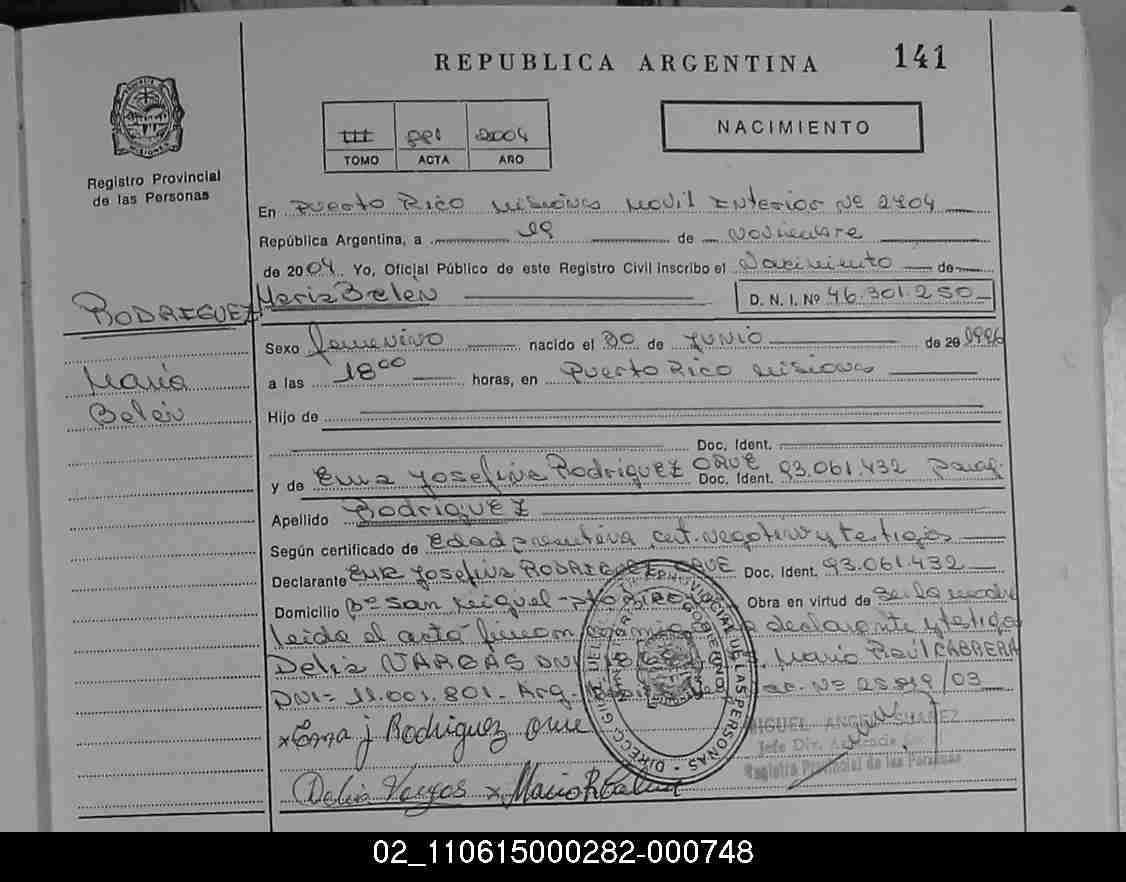 REPUBLICA ARGENTINA
141
Registro Provincial
de las Personas
III 991 2004
TOMO ACTA AÑO
NACIMIENTO
En Puerto Rico Misiones Movil Interior Nº 2404
República Argentina, a 19 de Noviembre
de 2004 Yo, Oficial Público de este Registro Civil inscribo el Nacimiento de
RODRIGUEZ
María Belén
Maria Belén D. N. I. Nº 46.301.250
Sexo femenino nacido el 30 de JUNIO de 20 1996
a las 18 00 horas, en Puerto Rico Misiones
Hijo de
Doc. Ident.
y de Ema Josefina Rodriguez ORUE Doc. Ident. 93.061.432 parag.
Apellido Rodriguez
Según certificado de Edad presuntiva cert. negativo y testigos
Declarante Ema Josefina RODRIGUEZ ORUE Doc. Ident. 93.061.432
Domicilio Bº San Miguel - Pto RICO Obra en virtud de Ser la madre
leida el acta firman conmigo declarante y testigos
Delia VARGAS DNI Mario Raúl CABRERA
DNI= 11.001.801. Arg. Nº 25819/03
x Ema J Rodriguez Orue
Delia Vargas x Mario R Cabrera
PROVINCIAL DE LAS PERSONAS
MIGUEL ANGEL SUAREZ
Jefe Div.
Registro Provincial de las Personas
02_110615000282-000748